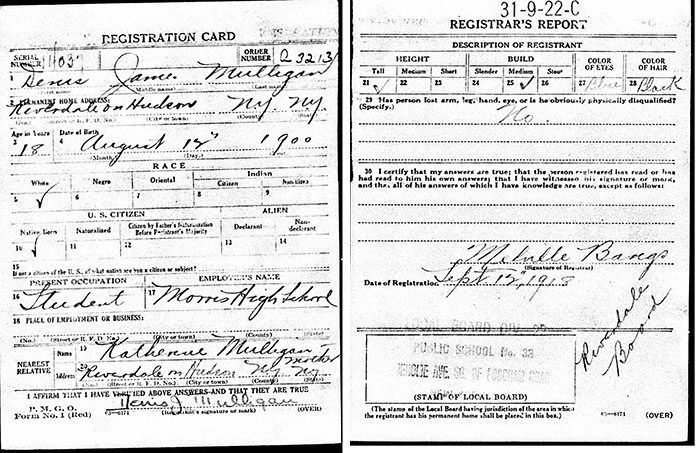 REGISTRATION CARD
SERIAL NUMBER 1103
ORDER NUMBER A 3213
1 Denis James Mulligan
(Middle name) (Last name)
2 PERMANENT HOME ADDRESS:
Riverdale on Hudson N.Y. N.Y.
(No.) (Street or R. F. D. No.) (City or town) (County) (State)
Age in Years Date of Birth
3 18 4 August 12th 1900
(Month) (Day)
RACE
White Negro Oriental Indian
Citizen Noncitizen
5 ✓ 6 7 8 9
U. S. CITIZEN ALIEN
Native Born Naturalized Citizen by Father's Naturalization Before Registrant's Majority Declarant Non-declarant
10 ✓ 11 12 13 14
15
If not a citizen of the U. S., of what nation are you a citizen or subject?
PRESENT OCCUPATION EMPLOYER'S NAME
16 Student 17 Morris High School
18 PLACE OF EMPLOYMENT OR BUSINESS:
(No.) (Street or R. F. D. No.) (City or town) (County) (State)
NEAREST RELATIVE
Name 19 Katherine Mulligan mother
Address 20 Riverdale on Hudson N.Y. N.Y.
(No.) (Street or R. F. D. No.) (City or town) (County) (State)
I AFFIRM THAT I HAVE VERIFIED ABOVE ANSWERS AND THAT THEY ARE TRUE
P. M. G. O.
Form No. 1 (Red) 03—6171 Denis J. Mulligan
(Registrant's signature or mark) (OVER)
31-9-22-C
REGISTRAR'S REPORT
DESCRIPTION OF REGISTRANT
HEIGHT BUILD COLOR OF EYES COLOR OF HAIR
Tall Medium Short Slender Medium Stout
21 ✓ 22 23 24 25 ✓ 26 27 Blue 28 Black
29 Has person lost arm, leg, hand, eye, or is he obviously physically disqualified?
(Specify.) No.
30 I certify that my answers are true; that the person registered has read or has
had read to him his own answers; that I have witnessed his signature or mark,
and that all of his answers of which I have knowledge are true, except as follows:
Melville Bangs
(Signature of Registrar)
Date of Registration Sept. 12th, 1918
LOCAL BOARD DIV.
PUBLIC SCHOOL No. 33
JEROME AVE. SO. OF FORDHAM ROAD
(STAMP OF LOCAL BOARD)
Riverdale
Board
(The stamp of the Local Board having jurisdiction of the area in which
the registrant has his permanent home shall be placed in this box.) 03—6171 (OVER)